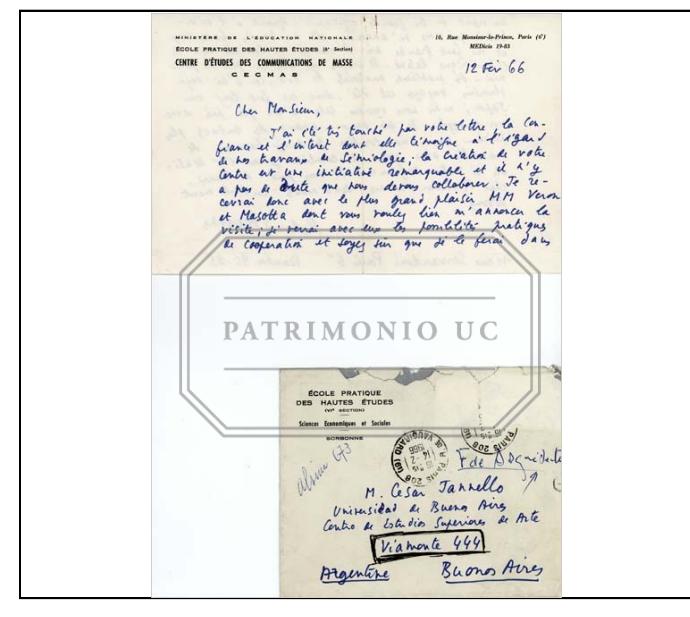 MINISTÈRE DE L'ÉDUCATION NATIONALE
ÉCOLE PRATIQUE DES HAUTES ÉTUDES (6e Section)
CENTRE D'ÉTUDES DES COMMUNICATIONS DE MASSE
CECMAS
10, Rue Monsieur-le-Prince, Paris (6e)
MEDicis 19-83
12 Fév 66
Cher Monsieur,
J'ai été très touché par votre lettre, la con-
fiance et l'intérêt dont elle témoigne à l'égard
de nos travaux de Sémiologie; la création de votre
Centre est une initiative remarquable et il n'y
a pas de doute que nous devons collaborer. Je re-
cevrai donc avec le plus grand plaisir MM Veron
et Masotta dont vous voulez bien m'annoncer la
visite; je verrai avec eux les possibilités pratiques
de coopération et soyez sûr que je le ferai dans
PATRIMONIO UC
ÉCOLE PRATIQUE
DES HAUTES ÉTUDES
(VIe SECTION)
Sciences Economiques et Sociales
SORBONNE
PARIS 206
R. DE VAUGIRARD (6e)
14-2
1966
PARIS 206
F de
M. Cesar Jannello
Universidad de Buenos Aires
Centro de Estudios Superiores de Arte
Viamonte 444
Argentine
Buenos Aires